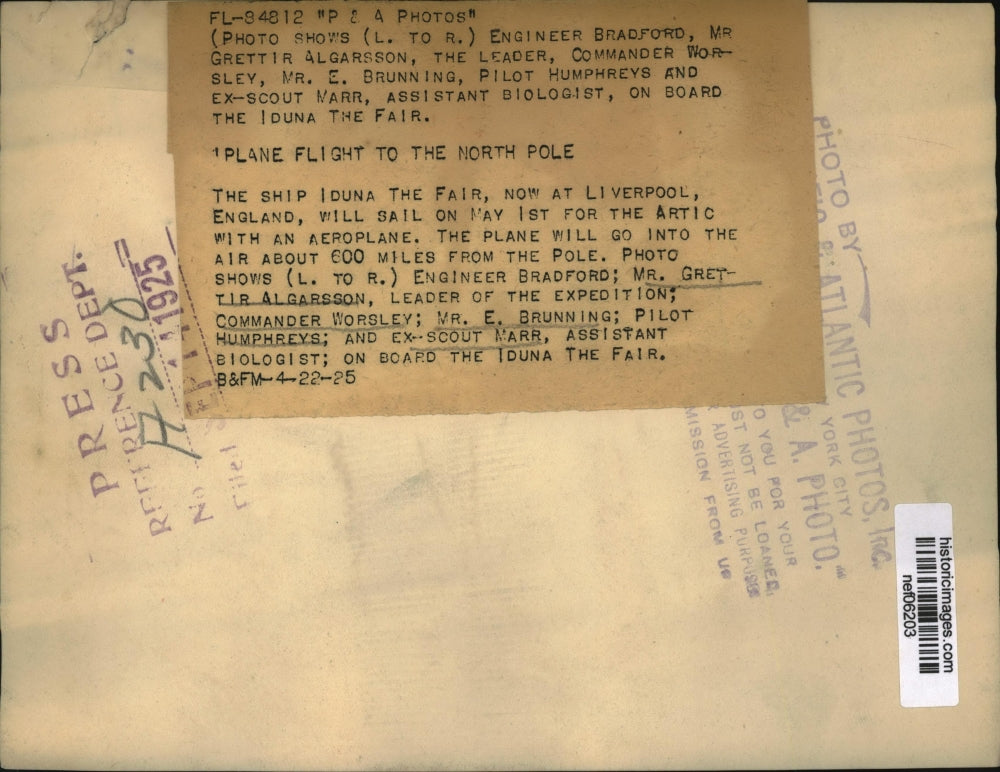 FL-84812 "P & A PHOTOS"
(PHOTO SHOWS (L. TO R.) ENGINEER BRADFORD, MR
GRETTIR ALGARSSON, THE LEADER, COMMANDER WOR-
SLEY, MR. E. BRUNNING, PILOT HUMPHREYS AND
EX-SCOUT MARR, ASSISTANT BIOLOGIST, ON BOARD
THE IDUNA THE FAIR.
PLANE FLIGHT TO THE NORTH POLE
THE SHIP IDUNA THE FAIR, NOW AT LIVERPOOL,
ENGLAND, WILL SAIL ON MAY 1ST FOR THE ARTIC
WITH AN AEROPLANE. THE PLANE WILL GO INTO THE
AIR ABOUT 600 MILES FROM THE POLE. PHOTO
SHOWS (L. TO R.) ENGINEER BRADFORD; MR. GRET-
TIR ALGARSSON, LEADER OF THE EXPEDITION;
COMMANDER WORSLEY; MR. E. BRUNNING; PILOT
HUMPHREYS; AND EX-SCOUT MARR, ASSISTANT
BIOLOGIST; ON BOARD THE IDUNA THE FAIR.
B&FM-4-22-25
PRESS
REFERENCE DEPT.
No
A 230
Filed
1925
PHOTO BY
& ATLANTIC PHOTOS, INC.
YORK CITY
& A. PHOTO.
TO YOU FOR YOUR
NOT BE LOANED
ADVERTISING PURPOSES
MISSION FROM US
historicimages.com
nef06203